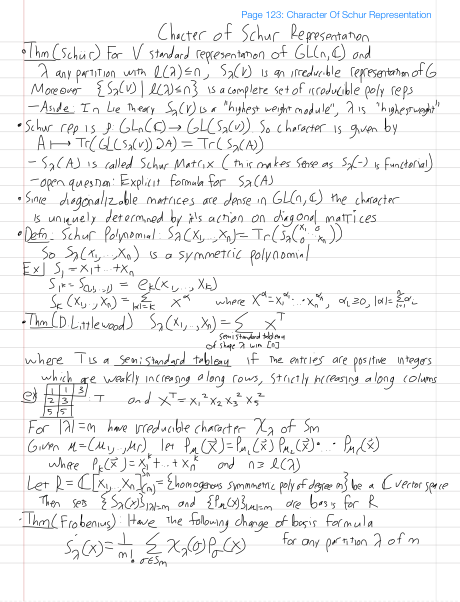 Page 123: Character Of Schur Representation
Chacter of Schur Representation
• Thm (Schur) For V standard representation of GL(n,ℂ) and
λ any partition with l(λ)≤n, S_λ(V) is an irreducible representation of G
Moreover {S_λ(V) | l(λ)≤n} is a complete set of irreducible poly reps
- Aside: In Lie theory S_λ(V) is a "highest weight module", λ is "highest weight"
• Schur rep is ρ: GL_n(ℂ) → GL(S_λ(V)). So character is given by
A ↦ Tr(GL(S_λ(V)) ↻ A) = Tr(S_λ(A))
- S_λ(A) is called Schur Matrix (this makes sense as S_λ(-) is functorial)
- open question: Explicit formula for S_λ(A)
• Since diagonalizable matrices are dense in GL(n,ℂ) the character
is uniquely determined by its action on diagonal matrices
• Defn. Schur Polynomial: S_λ(x_1,...,x_n) = Tr(S_λ(x_1 0 ⋱ 0 x_n))
So S_λ(x_1,...,x_n) is a symmetric polynomial
Ex) S_1 = x_1+...+x_n
S_{1^k} = S_{(1,...,1)} = e_k(x_1,...,x_k)
S_k(x_1,...,x_n) = Σ_{|α|=k} x^α where x^α = x_1^{α_1}...x_n^{α_n}, α_i≥0, |α|=Σ_{i=1}^n α_i
• Thm (D. Littlewood) S_λ(x_1,...,x_n) = Σ x^T
Semistandard tableau
of shape λ w in [n]
where T is a semistandard tableau if the entries are positive integers
which are weakly increasing along rows, strictly increasing along colums
ex) 1 1 3
2 3 : T and x^T = x_1^2 x_2 x_3^2 x_5^2
5 5
For |λ|=m have irreducible character χ_λ of S_m
Given μ=(μ_1,...,μ_r) let P_μ(x⃗) = P_{μ_1}(x⃗) P_{μ_2}(x⃗)·...· P_{μ_r}(x⃗)
where P_k(x⃗) = x_1^k+...+x_n^k and n ≥ l(λ)
Let R = ℂ[x_1,...,x_n]^{S_n}_{(m)} = {homogenous symmmetric poly of degree m} be a ℂ vector space
Then sets {S_λ(x⃗)}_{|λ|=m} and {P_μ(x⃗)}_{|μ|=m} are basis for R
• Thm (Frobenius): Have the following change of basis formula
S_λ(x⃗) = 1/m! Σ_{σ∈S_m} χ_λ(σ) P_σ(x⃗) for any partition λ of m